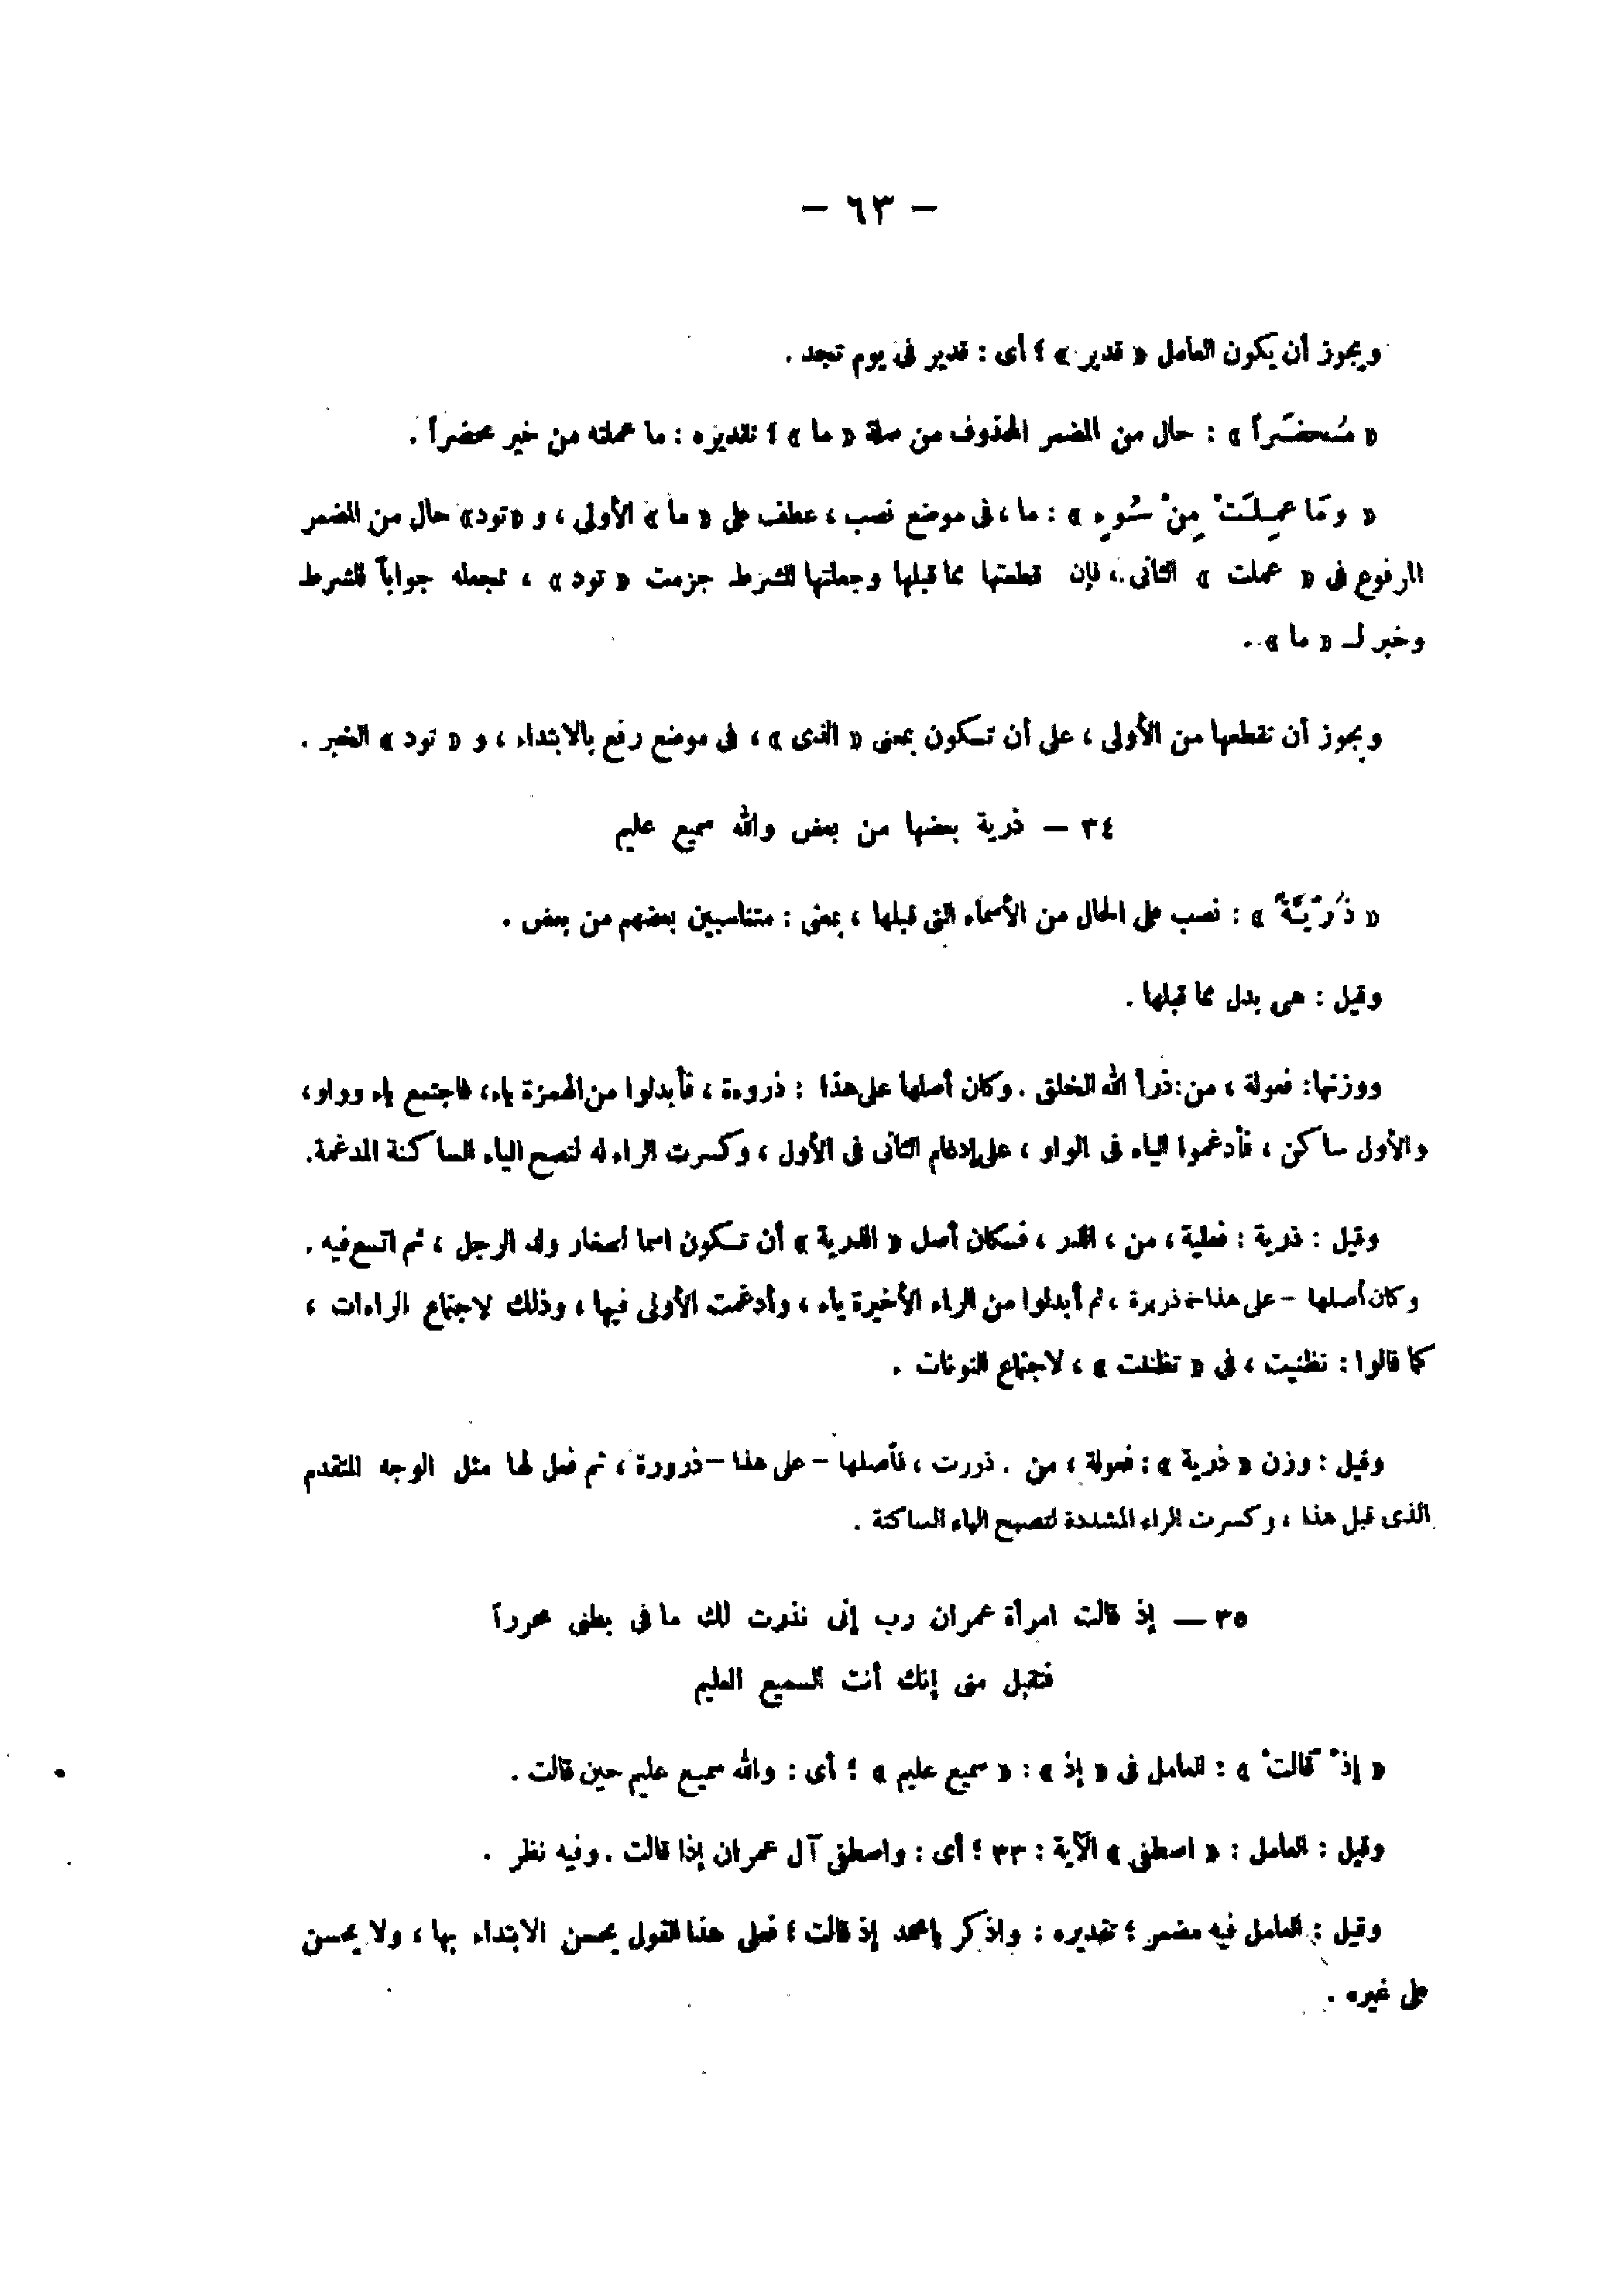 — ٦٣ —
ويجوز أن يكون العامل « قدير » ؛ أى : قدير فى يوم تجد .
« مُحضَراً » : حال من المضمر المحذوف من صلة « ما » ؛ تقديره : ما عملته من خير محضراً .
« وَمَا عمِلَتْ مِنْ سُوءٍ » : ما ، فى موضع نصب ، عطف على « ما » الأولى ، و « تود » حال من المضمر
المرفوع فى « عملت » الثانى ، فإن قطعتها مما قبلها وجعلتها للشرط جزمت « تود » ، تجعله جواباً للشرط
وخبر لـ « ما » .
ويجوز أن تقطعها من الأولى ، على أن تكون بمعنى « الذى » ، فى موضع رفع بالابتداء ، و « تود » الخبر .
٣٤ — ذرية بعضها من بعض والله سميع عليم
« ذُرّيَّةً » : نصب على الحال من الأسماء التى قبلها ، بمعنى : متناسبين بعضهم من بعض .
وقيل : هى بدل مما قبلها .
ووزنها : فعولة ، من : ذرأ الله الخلق . وكان أصلها على هذا : ذروءة ، فأبدلوا من الهمزة ياء ، فاجتمع ياء وواو ،
والأول ساكن ، فأدغموا الياء فى الواو ، على إدغام الثانى فى الأول ، وكسرت الراء له لتصح الياء الساكنة المدغمة .
وقيل : ذرية : فعلية ، من ، الذر ، فكان أصل « الذرية » أن تكون اسما لصغار ولد الرجل ، ثم اتسع فيه .
وكان أصلها – على هذا – ذريرة ، ثم أبدلوا من الراء الأخيرة ياء ، وأدغمت الأولى فيها ، وذلك لاجتماع الراءات ،
كما قالوا : تظنيت ، فى « تظننت » ، لاجتماع النونات .
وقيل : وزن « ذرية » : فعولة ، من . ذررت ، فأصلها – على هذا – ذرورة ، ثم فعل لها مثل الوجه المتقدم
الذى قبل هذا ، وكسرت الراء المشددة لتصح الياء الساكنة .
٣٥ — إذ قالت امرأة عمران رب إنى نذرت لك ما فى بطنى محرراً
فتقبل منى إنك أنت السميع العليم
« إذْ قالتْ » : العامل فى « إذ » : « سميع عليم » ؛ أى : والله سميع عليم حين قالت .
وقيل : العامل : « اصطفى » الآية : ٣٣ ؛ أى : واصطفى آل عمران إذا قالت . وفيه نظر .
وقيل : العامل فيه مضمر ؛ تقديره : واذكر يامحمد إذ قالت ؛ فعلى هذا القول يحسن الابتداء بها ، ولا يحسن
على غيره .